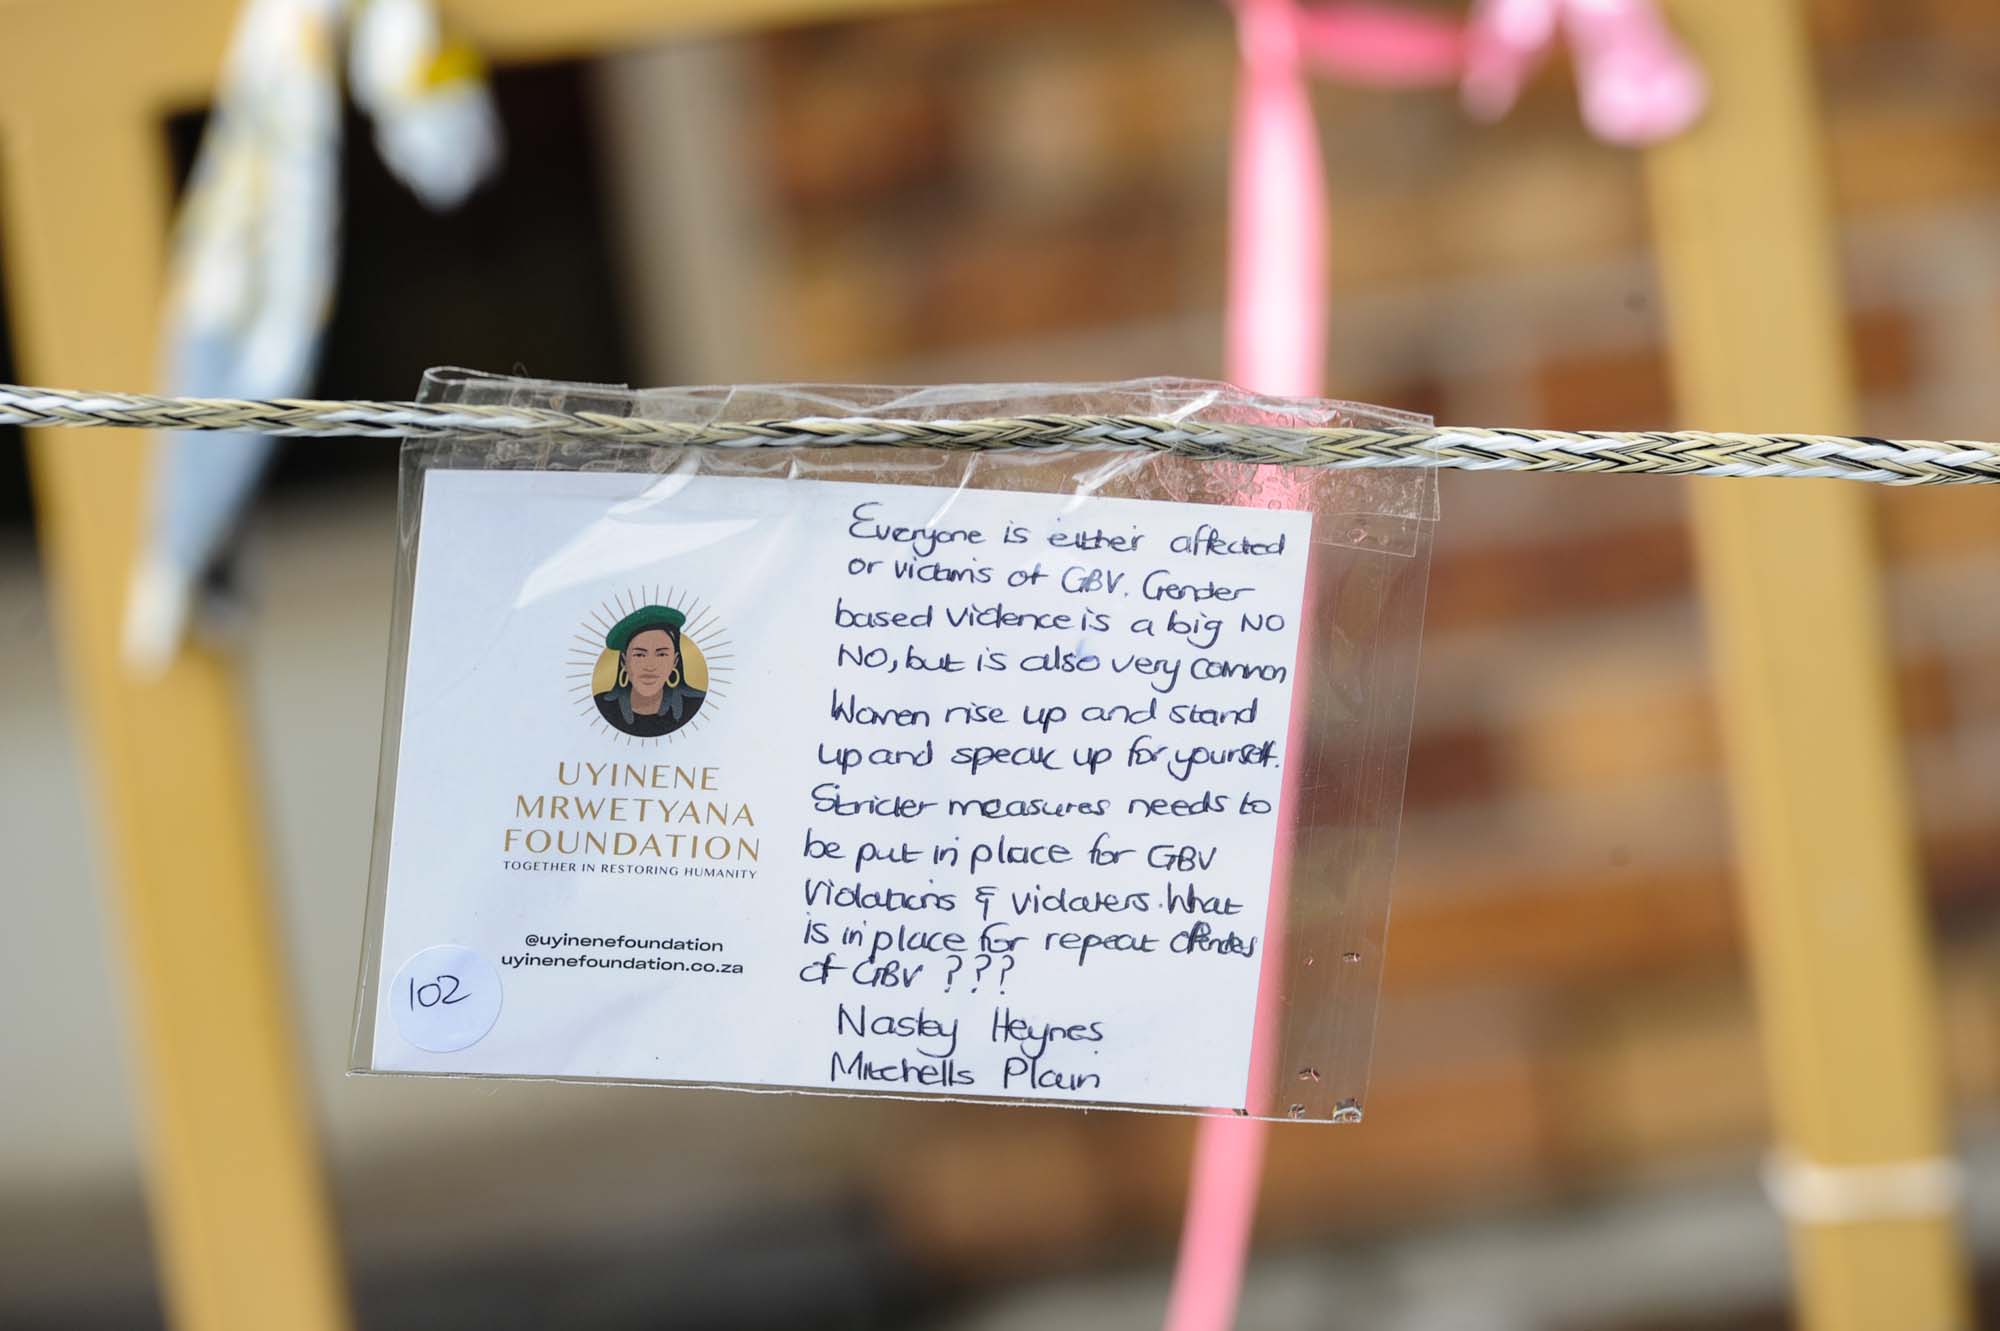 UYINENE
MRWETYANA
FOUNDATION
TOGETHER IN RESTORING HUMANITY
@uyinenefoundation
uyinenefoundation.co.za
102
Everyone is either affected
or victims of GBV. Gender
based violence is a big NO
NO, but is also very common
Women rise up and stand
up and speak up for yourself.
Stricter measures needs to
be put in place for GBV
violations & violaters. What
is in place for repeat offenders
of GBV ???
Nasley Heynes
Mitchells Plain